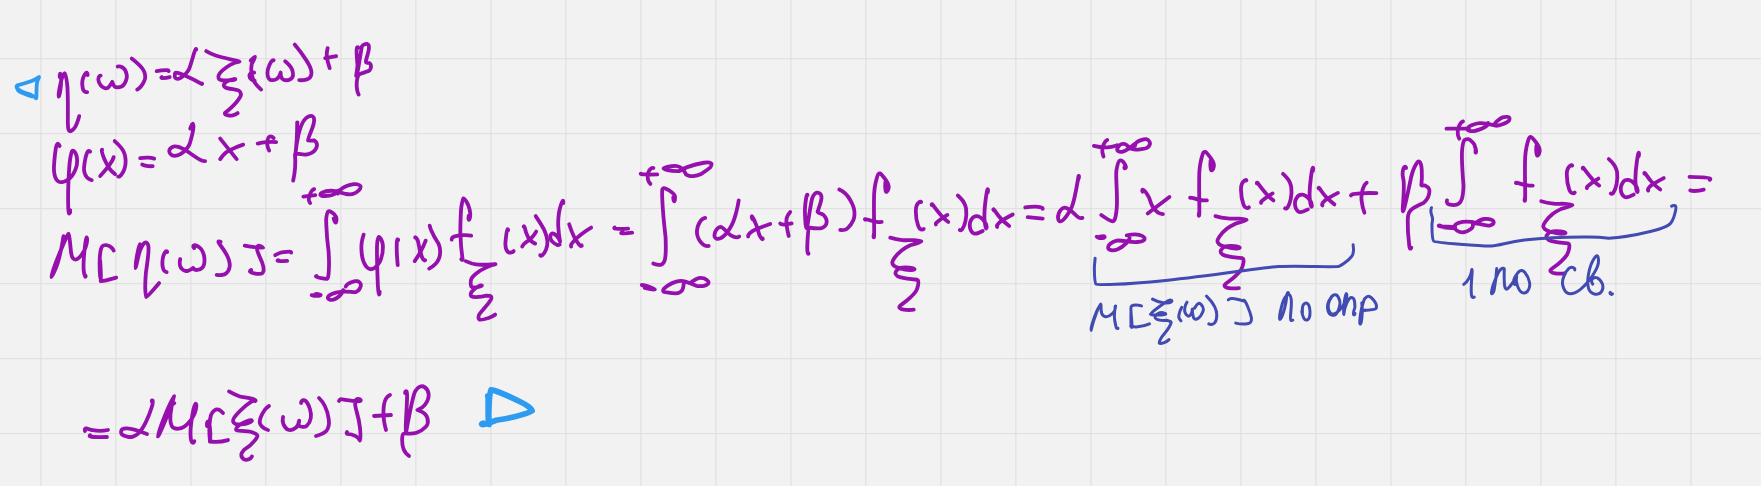 ◁ η(ω) = αξ(ω) + β
φ(x) = αx + β
M[η(ω)] = ∫_{-∞}^{+∞} φ(x) f_ξ(x)dx = ∫_{-∞}^{+∞} (αx+β) f_ξ(x)dx = α ∫_{-∞}^{+∞} x f_ξ(x)dx + β ∫_{-∞}^{+∞} f_ξ(x)dx =
M[ξ(ω)] по опр 1 по св.
= αM[ξ(ω)] + β ▷